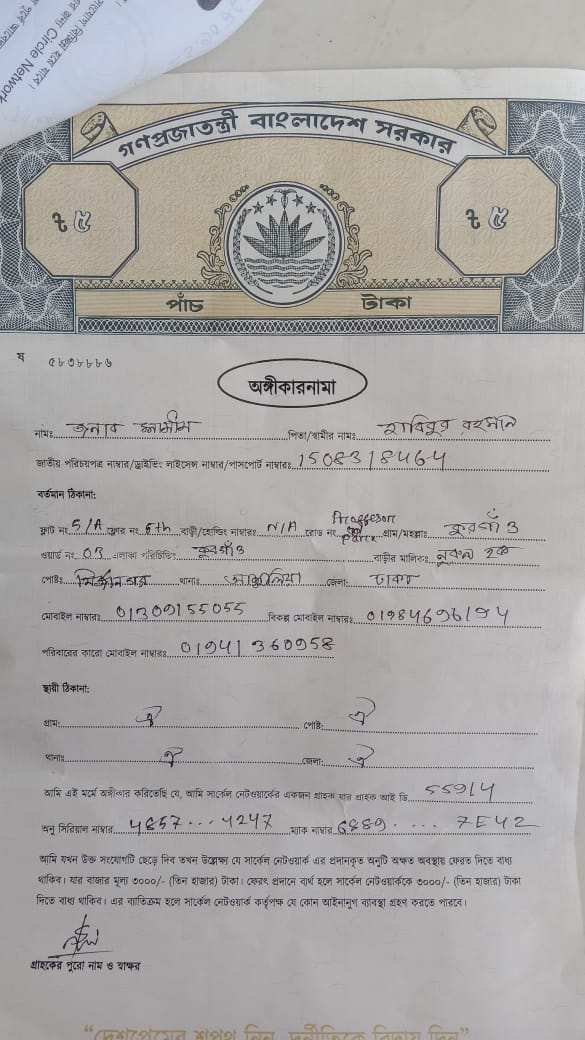 Circle Network
গণপ্রজাতন্ত্রী বাংলাদেশ সরকার
৳ ৫ ৳ ৫
পাঁচ টাকা
ষ ৫৮৩৮৮৮৬
অঙ্গীকারনামা
নামঃ জনাব পিতা/স্বামীর নামঃ হাবিবুর রহমান
জাতীয় পরিচয়পত্র নাম্বার/ড্রাইভিং লাইসেন্স নাম্বার/পাসপোর্ট নাম্বারঃ 1508318464
বর্তমান ঠিকানা:
ফ্লাট নং 5/A ফ্লোর নং 5th বাড়ী/হোল্ডিং নাম্বারঃ N/A রোড নং Proffeson Parck গ্রাম/মহল্লাঃ কুরগাঁও
ওয়ার্ড নং 03 এলাকা পরিচিতিঃ কুরগাঁও বাড়ীর মালিকঃ নুরুল হক
পোষ্টঃ মির্জানগর থানাঃ আশুলিয়া জেলা: ঢাকা
মোবাইল নাম্বারঃ 01309155055 বিকল্প মোবাইল নাম্বারঃ 01984696194
পরিবারের কারো মোবাইল নাম্বারঃ 01941360958
স্থায়ী ঠিকানা:
গ্রাম: ঐ পোষ্ট: ঐ
থানাঃ ঐ জেলা: ঐ
আমি এই মর্মে অঙ্গীকার করিতেছি যে, আমি সার্কেল নেটওয়ার্কের একজন গ্রাহক যার গ্রাহক আই ডি 55914
অনু সিরিয়াল নাম্বার 4857...4247 ম্যাক নাম্বার 6889.... 7E42
আমি যখন উক্ত সংযোগটি ছেড়ে দিব তখন উল্লেখ্য যে সার্কেল নেটওয়ার্ক এর প্রদানকৃত অনুটি অক্ষত অবস্থায় ফেরত দিতে বাধ্য
থাকিব। যার বাজার মূল্য ৩০০০/- (তিন হাজার) টাকা। ফেরৎ প্রদানে ব্যর্থ হলে সার্কেল নেটওয়ার্ককে ৩০০০/- (তিন হাজার) টাকা
দিতে বাধ্য থাকিব। এর ব্যতিক্রম হলে সার্কেল নেটওয়ার্ক কর্তৃপক্ষ যে কোন আইনানুগ ব্যবস্থা গ্রহণ করতে পারবে।
গ্রাহকের পুরো নাম ও স্বাক্ষর
“দেশপ্রেমের শপথ নিন, দুর্নীতিকে বিদায় দিন”